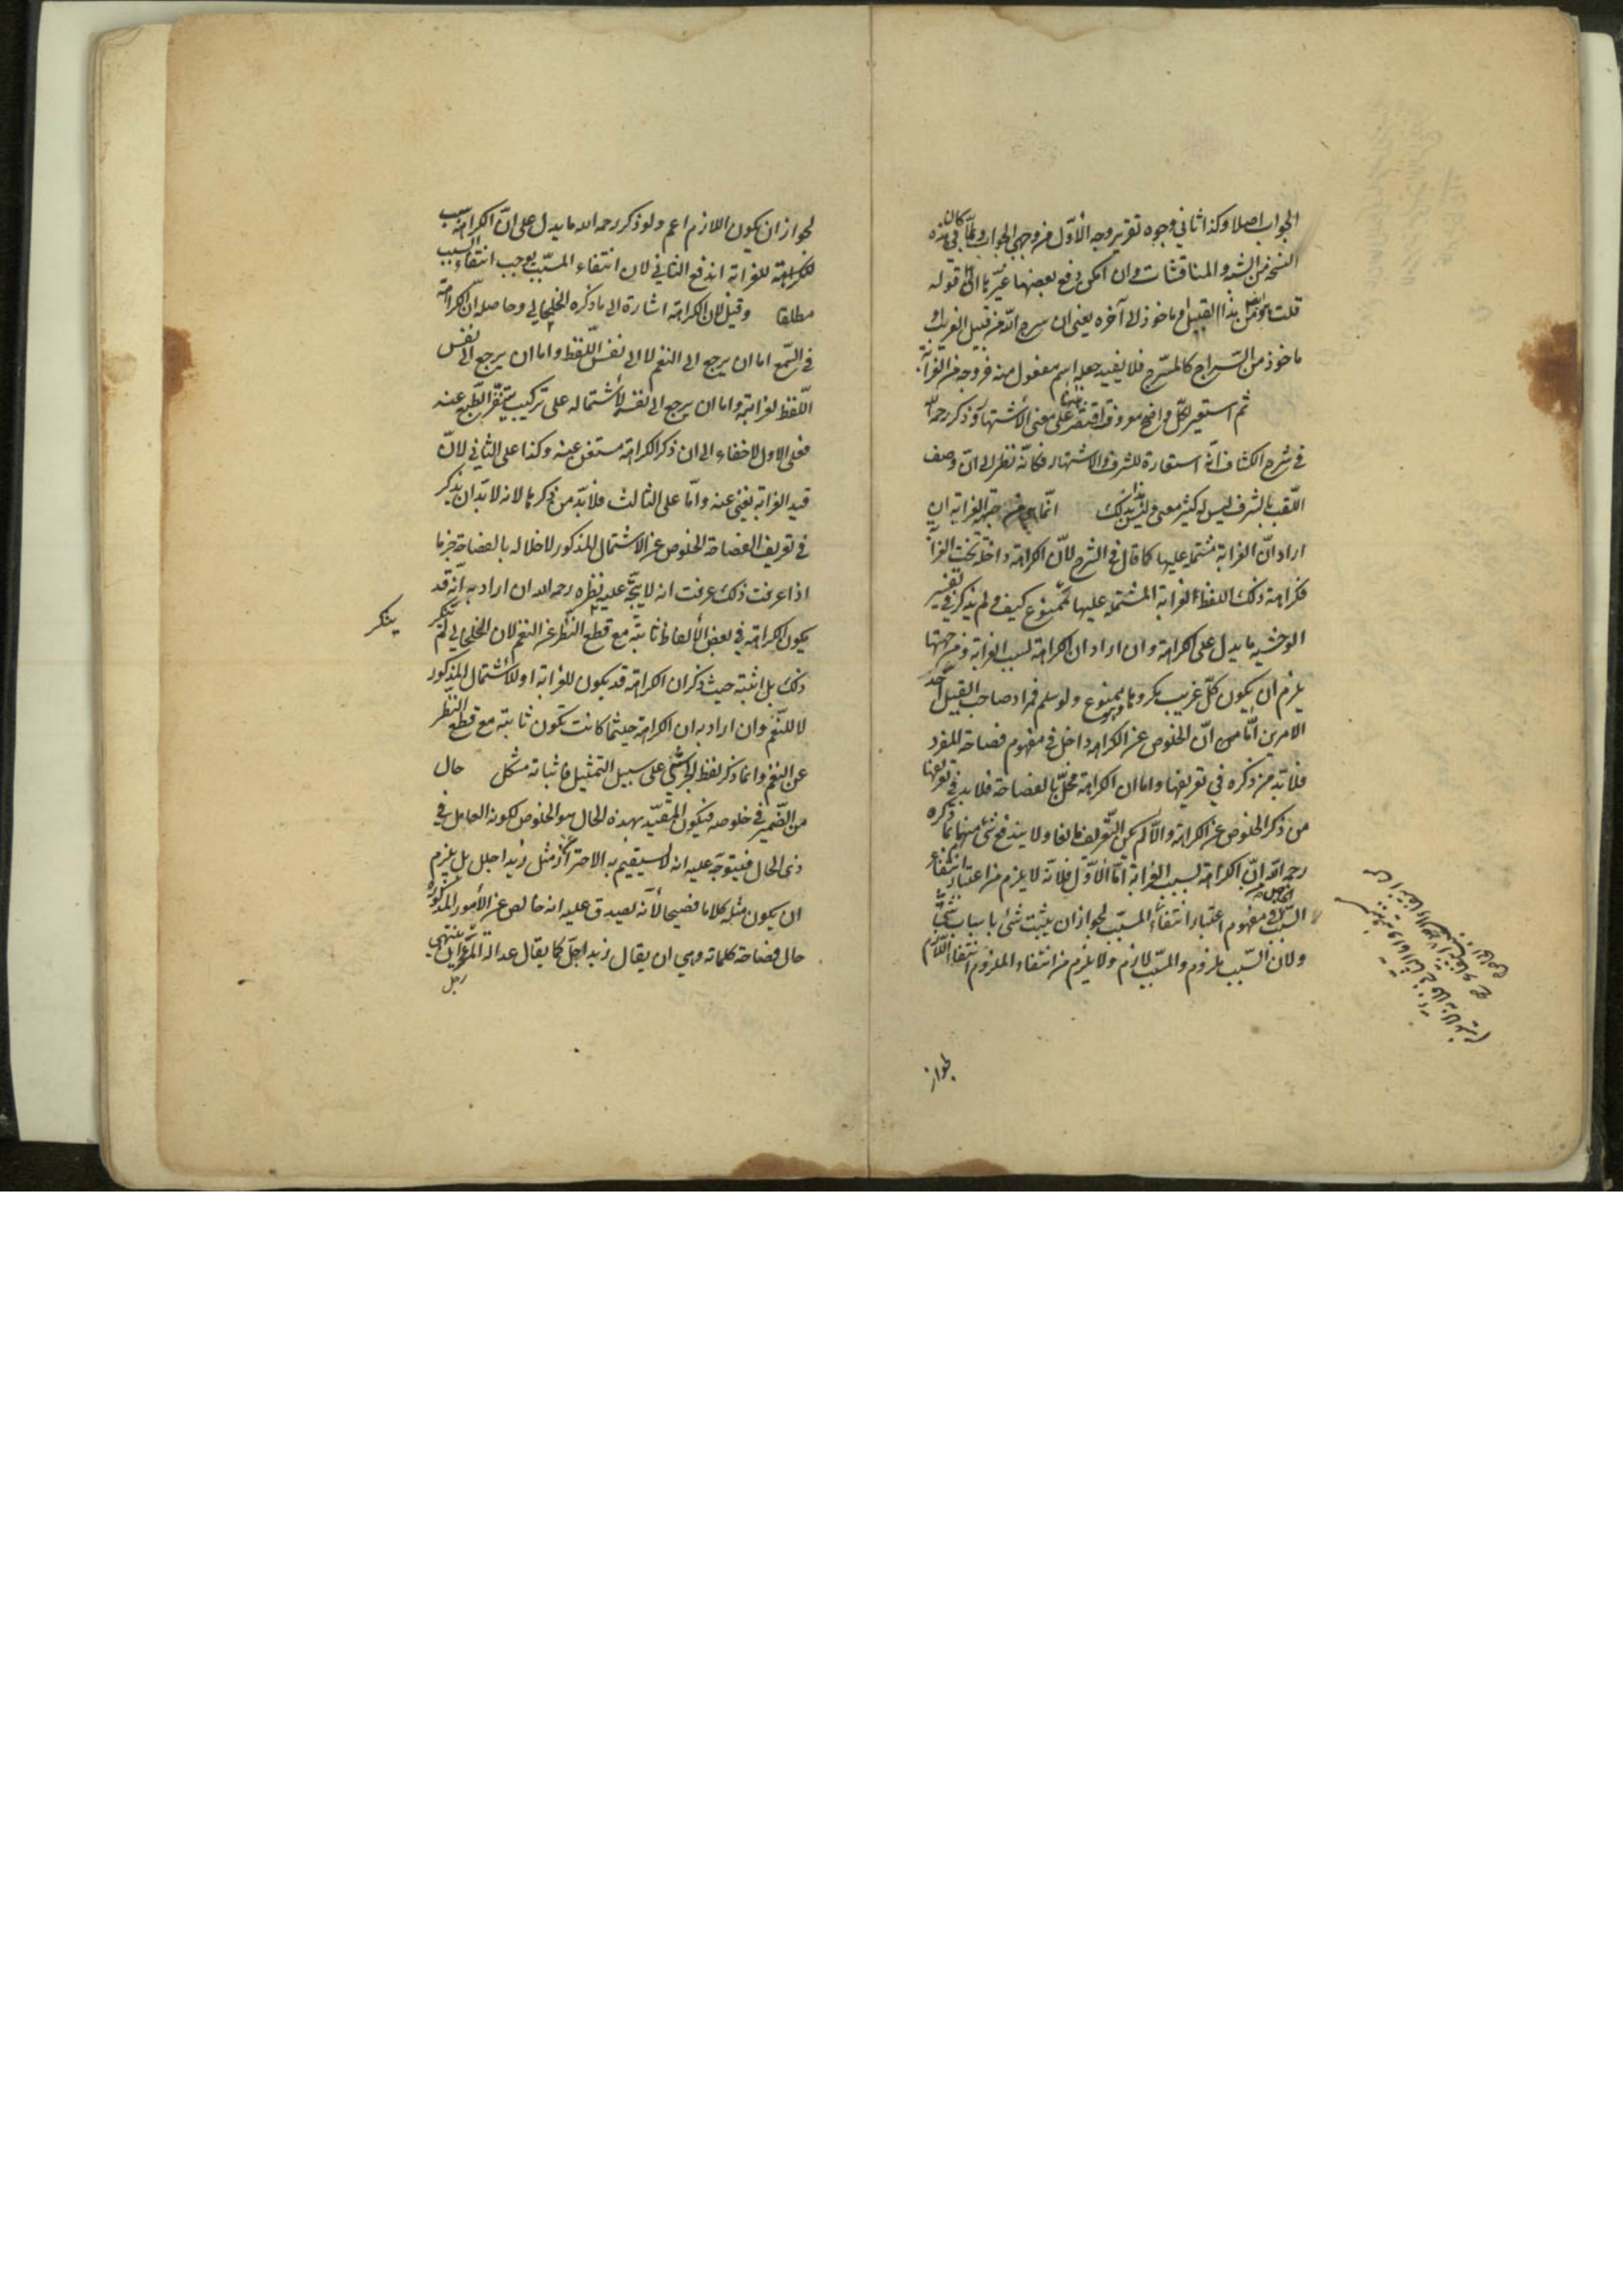 الجواب اصلا وكذا ثاني وجوه تقرير وجه الأوّل من وجهي الجواب ولمّا كان في هذه
النسخ من الشذ والمناقشات وان امكن دفع بعضها غيّرها الى قوله
قلت هو ايضا من هذا القبيل او ماخوذ الى آخره يعنى ان سرج الله من قبيل الغريب او
ماخوذ من السّراج كالمسرّج فلا يفيد جعله اسم مفعول منه خروجه من الغرابة
ثم استعير لكلّ واضح معروف اقتصر هنا على معنى الأشتهار وذكر رحمه الله
في شرح الكشاف انّه استعارة للشرف والاشتهار فكانّه نظر الى انّ وصف
اللّقب بالشرف ليس له كثير معنى وليس بذلك انّما هي من جهة الغرابة ان
اراد انّ الغرابة مشتملة عليها كما قال في الشرح لأنّ الكراهة داخلة تحت الغرابة
فكراهة ذلك اللفظ الغرابة المشتملة عليها فممنوع كيف ولم يذكر في تفسير
الوحشية ما يدل على الكراهة وان اراد ان الكراهة لسبب الغرابة ومن جهتها
يلزم ان يكون كلّ غريب مكروها وهو ممنوع ولو سلم فمراد صاحب القيل احد
الامرين امّا من انّ الخلوص عن الكراهة داخل في مفهوم فصاحة المفرد
فلا بدّ من ذكره في تعريفها واما ان الكراهة مخلّ بالفصاحة فلا بد في تعريفها
من ذكر الخلوص عن الكراهة والّا لم يكن التّعريف مانعا ولا يندفع شئ منهما بما ذكره
رحمه الله انّ الكراهة لسبب الغرابة امّا الأوّل فلأنّه لا يلزم من اعتبار انتفاء
السّبب في مفهوم اعتبار انتفاء المسبّب لجواز ان يثبت شئ باسباب شتّى
ولان السّبب ملزوم والمسبّب لازم ولا يلزم من انتفاء الملزوم انتفاء اللّازم
لجواز
لجواز ان يكون اللازم اعم ولو ذكر رحمه الله ما يدل على انّ الكراهة سبب
للغرابة اندفع الثاني لان انتفاء المسبّب يوجب انتفاء السبب
مطلقا وقيل لان الكراهة اشارة الى ما ذكره الخلخالي وحاصله انّ الكراهة
في السّمع اما ان يرجع الى النغم لا الى نفس اللّفظ واما ان يرجع الى نفس
اللّفظ لغرابته واما ان يرجع الى نفسه لأشتماله على تركيب يتنفّر الطّبع عنه
فعلى الاول لا خفاء الى ان ذكر الكراهة مستغن عنه وكذا على الثاني لانّ
قيد الغرابة يغنى عنه وامّا على الثالث فلا بدّ من ذكرها لانه لا بدّ ان يذكر
في تعريف الفصاحة الخلوص عن الاشتمال المذكور لاخلاله بالفصاحة جزما
اذا عرفت ذلك عرفت انه لا يتجّه عليه نظره رحمه الله ان اراد به انّه قد
يكون الكراهة في بعض الألفاظ ثابتة مع قطع النّظر عن النغم لان الخلخالي لم ينكر
ينكر
ذلك بل اثبته حيث ذكر ان الكراهة قد يكون للغرابة او للأشتمال المذكور
لا للنّغم وان اراد به ان الكراهة حيثما كانت تكون ثابتة مع قطع النظر
عن النغم وانما ذكر لفظ الجرشّى على سبيل التمثيل فاثباته مشكل حال
من الضّمير في خلوصه فيكون المقيّد بهذه الحال هو الخلوص لكونه العامل في
ذى الحال فيتوجّه عليه انه لا يستقيم به الاحتراز عن مثل زيد اجلل بل يلزم
ان يكون مثله كلاما فصيحا لأنّه يصدق عليه انه خالص عن الأمور المذكورة
حال فصاحة كلماته وهي ان يقال زيد اجلّ كما يقال عدالة المرء ان ينتهي
رجل